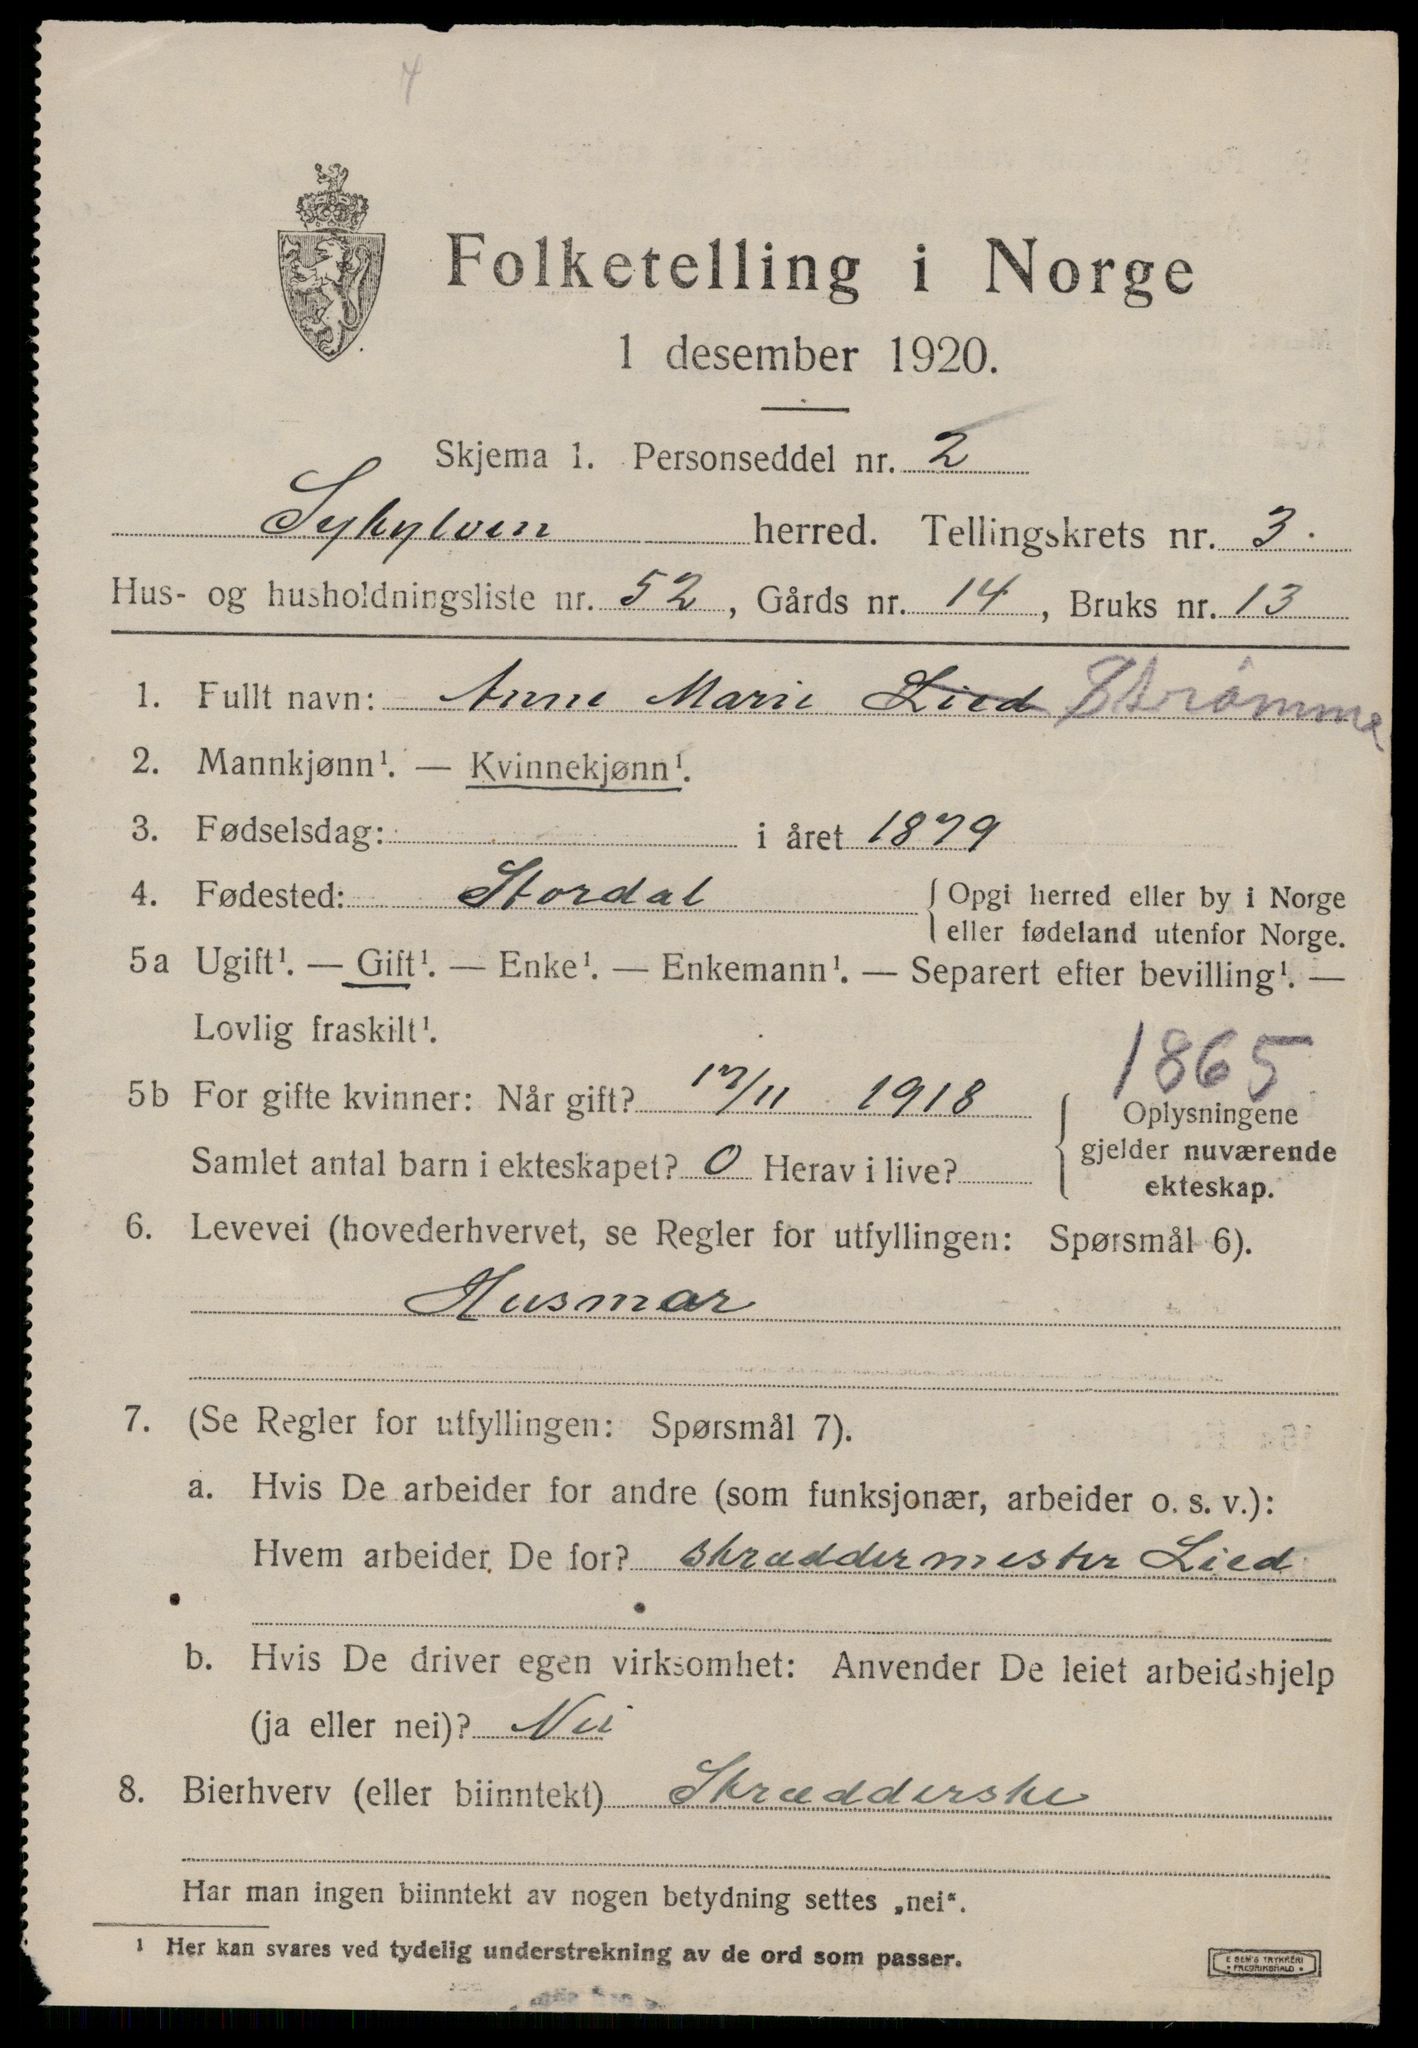 4
Folketelling i Norge
1 desember 1920.
Skjema 1. Personseddel nr. 2
Sykylven herred. Tellingskrets nr. 3.
Hus- og husholdningsliste nr. 52, Gårds nr. 14, Bruks nr. 13
1. Fullt navn: Anne Marie Lied Strømme
2. Mannkjønn¹. — Kvinnekjønn¹.
3. Fødselsdag: i året 1879
4. Fødested: Stordal { Opgi herred eller by i Norge
eller fødeland utenfor Norge.
5a Ugift¹. — Gift¹. — Enke¹. — Enkemann¹. — Separert efter bevilling¹. —
Lovlig fraskilt¹.
1865
5b For gifte kvinner: Når gift? 17/11 1918 { Oplysningene
gjelder nuværende
ekteskap.
Samlet antal barn i ekteskapet? 0 Herav i live?
6. Levevei (hovederhvervet, se Regler for utfyllingen: Spørsmål 6).
Husmor
7. (Se Regler for utfyllingen: Spørsmål 7).
a. Hvis De arbeider for andre (som funksjonær, arbeider o. s. v.):
Hvem arbeider De for? skræddermester Lied
b. Hvis De driver egen virksomhet: Anvender De leiet arbeidshjelp
(ja eller nei)? Nei
8. Bierhverv (eller biinntekt) Skrædderske
Har man ingen biinntekt av nogen betydning settes „nei“.
¹ Her kan svares ved tydelig understrekning av de ord som passer.
E SEM'S TRYKKERI
FREDRIKSHALD